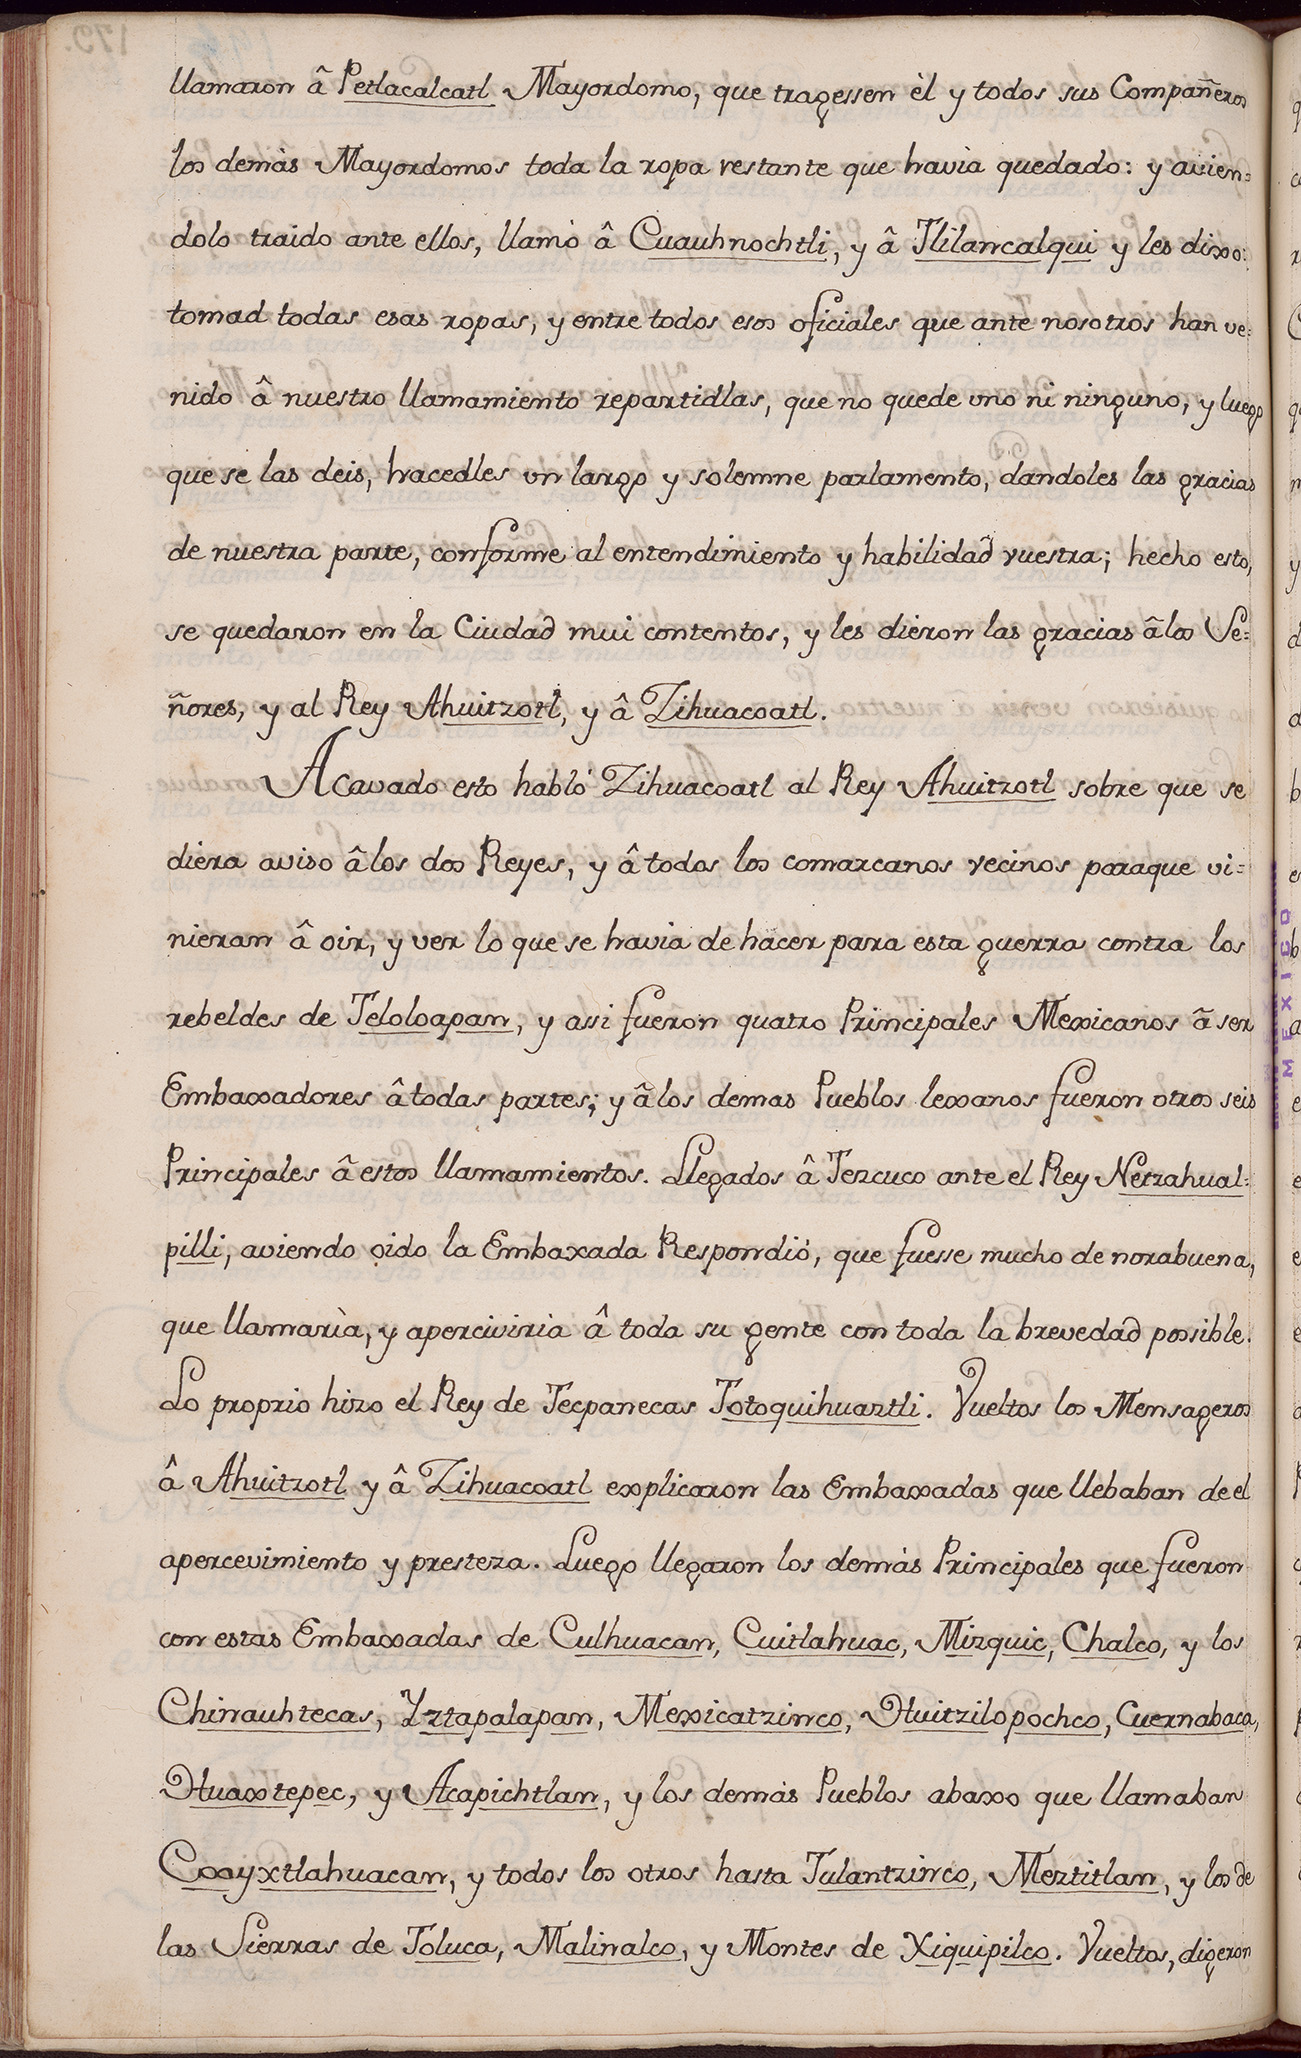 llamaron â Petlacalcatl Mayordomo, que tragessen èl y todos sus Compañeros
los demàs Mayordomos toda la ropa restante que havia quedado: y avien=
dolo traido ante ellos, llamò â Cuauhnochtli, y â Tlilancalqui y les dixo:
tomad todas esas ropas, y entre todos esos oficiales que ante nosotros han ve=
nido â nuestro llamamiento repartidlas, que no quede uno ni ninguno, y luego
que se las deis, hacedles un largo y solemne parlamento, dandoles las gracias
de nuestra parte, conforme al entendimiento y habilidad vuestra; hecho esto,
se quedaron en la Ciudad mui contentos, y les dieron las gracias âlos Se=
ñores, y al Rey Ahuitzotl, y â Zihuacoatl.
Acavado esto habló Zihuacoatl al Rey Ahuitzotl sobre que se
diera aviso âlos dos Reyes, y â todos los comarcanos vecinos paraque vi=
nieran â oir, y ver lo que se havia de hacer para esta guerra contra los
rebeldes de Teloloapan, y assi fueron quatro Principales Mexicanos â ser
Embaxadores â todas partes; y âlos demas Pueblos lexanos fueron otros seis
Principales â estos llamamientos. Llegados â Tezcuco ante el Rey Netzahual=
pilli, aviendo oido la Embaxada Respondió, que fuesse mucho de norabuena,
que llamarìa, y aperciviria â toda su gente con toda la brevedad possible.
Lo proprio hizo el Rey de Tecpanecas Totoquihuaztli. Vueltos los Mensageros
â Ahuitzotl y â Zihuacoatl explicaron las Embaxadas que llebaban de el
apercevimiento y presteza. Luego llegaron los demàs Principales que fueron
con estas Embaxadas de Culhuacan, Cuitlahuac, Mizquic, Chalco, y los
Chinauhtecas, Yztapalapan, Mexicatzinco, Huitzilopochco, Cuernabaca,
Huaxtepec, y Acapichtlan, y los demàs Pueblos abaxo que llamaban
Coayxtlahuacan, y todos los otros hasta Tulantzinco, Meztitlan, y los de
las Sierras de Toluca, Malinalco, y Montes de Xiquipilco. Vueltos, digeron
MEXICO